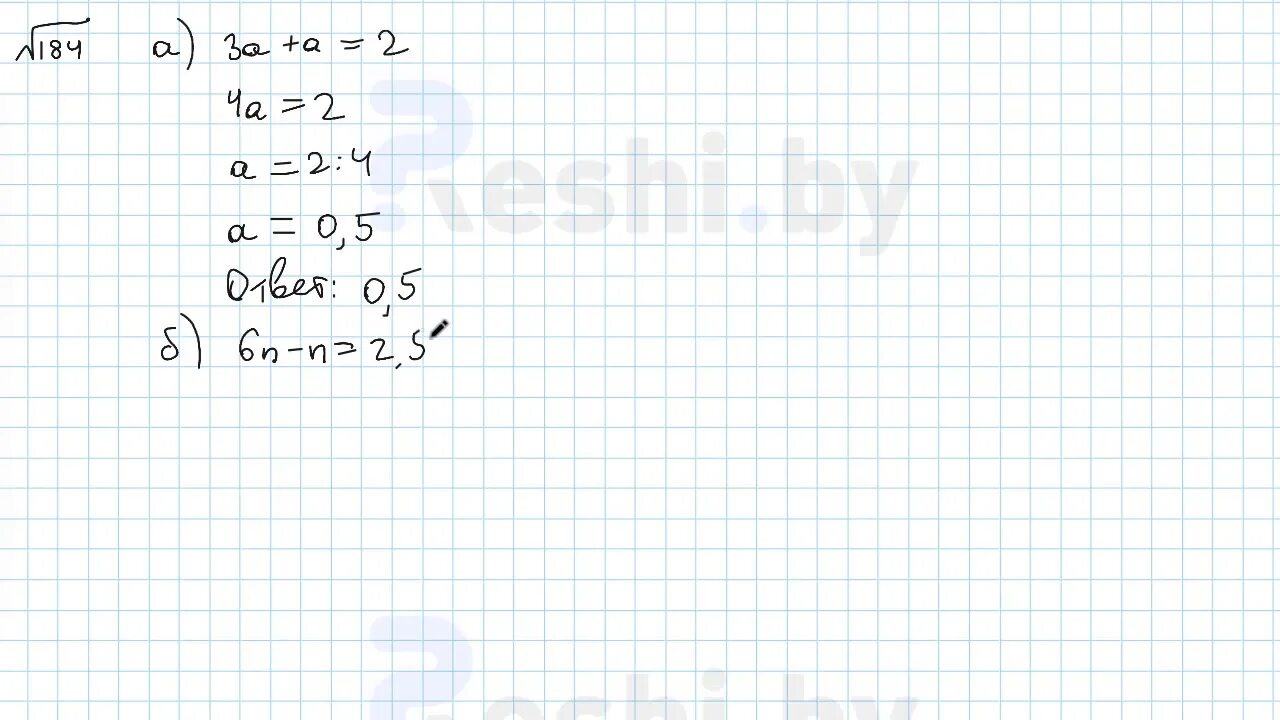 √184 а) 3a + a = 2
4a = 2
a = 2:4
a = 0,5
Ответ: 0,5
б) 6n - n = 2,5
Reshi.by
Reshi.by